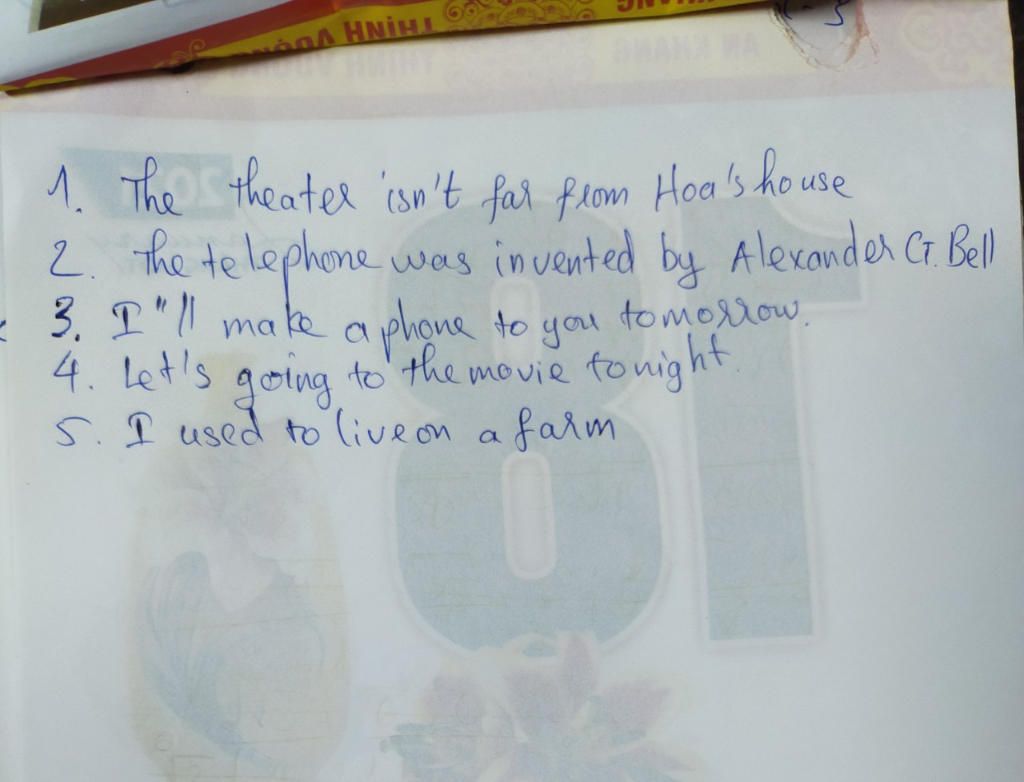 THỊNH VƯỢNG
1. The theater isn't far from Hoa's house
2. The telephone was invented by Alexander G. Bell
3. I"ll make a phone to you tomorrow.
4. Let's going to the movie tonight.
5. I used to live on a farm
18